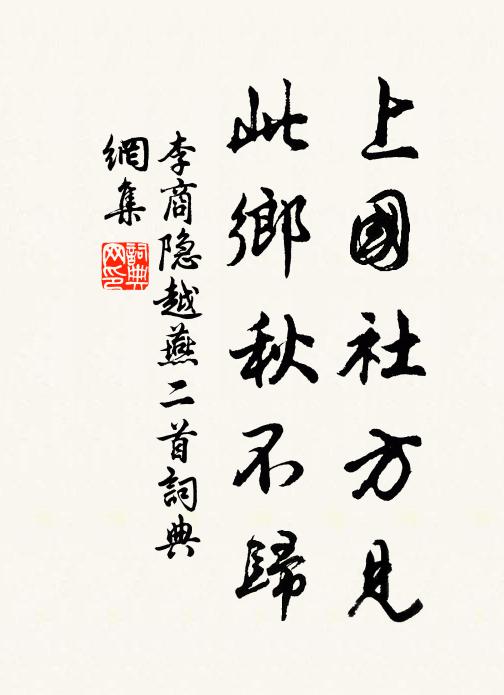 上國社方見
此鄉秋不歸
李商隐越燕二首詞典
網集
詞典网印